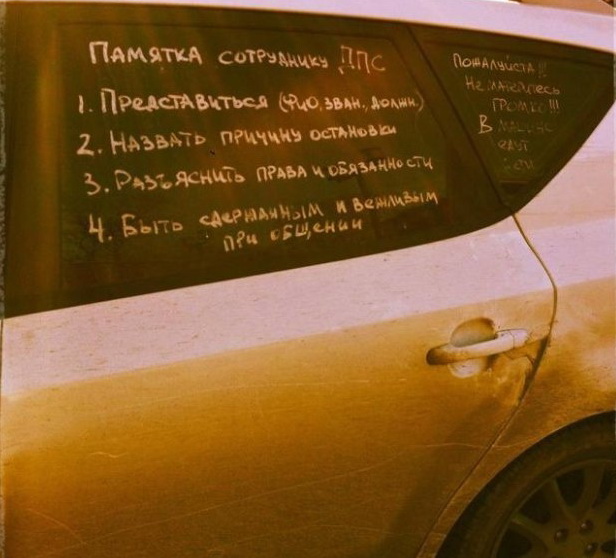 Памятка сотруднику ДПС
1. Представиться (ФИО, зван., должн.)
2. Назвать причину остановки
3. Разъяснить права и обязанности
4. Быть сдержанным и вежливым
при общении
Пожалуйста!!
Не матайтесь
громко!!!
В машине
едут